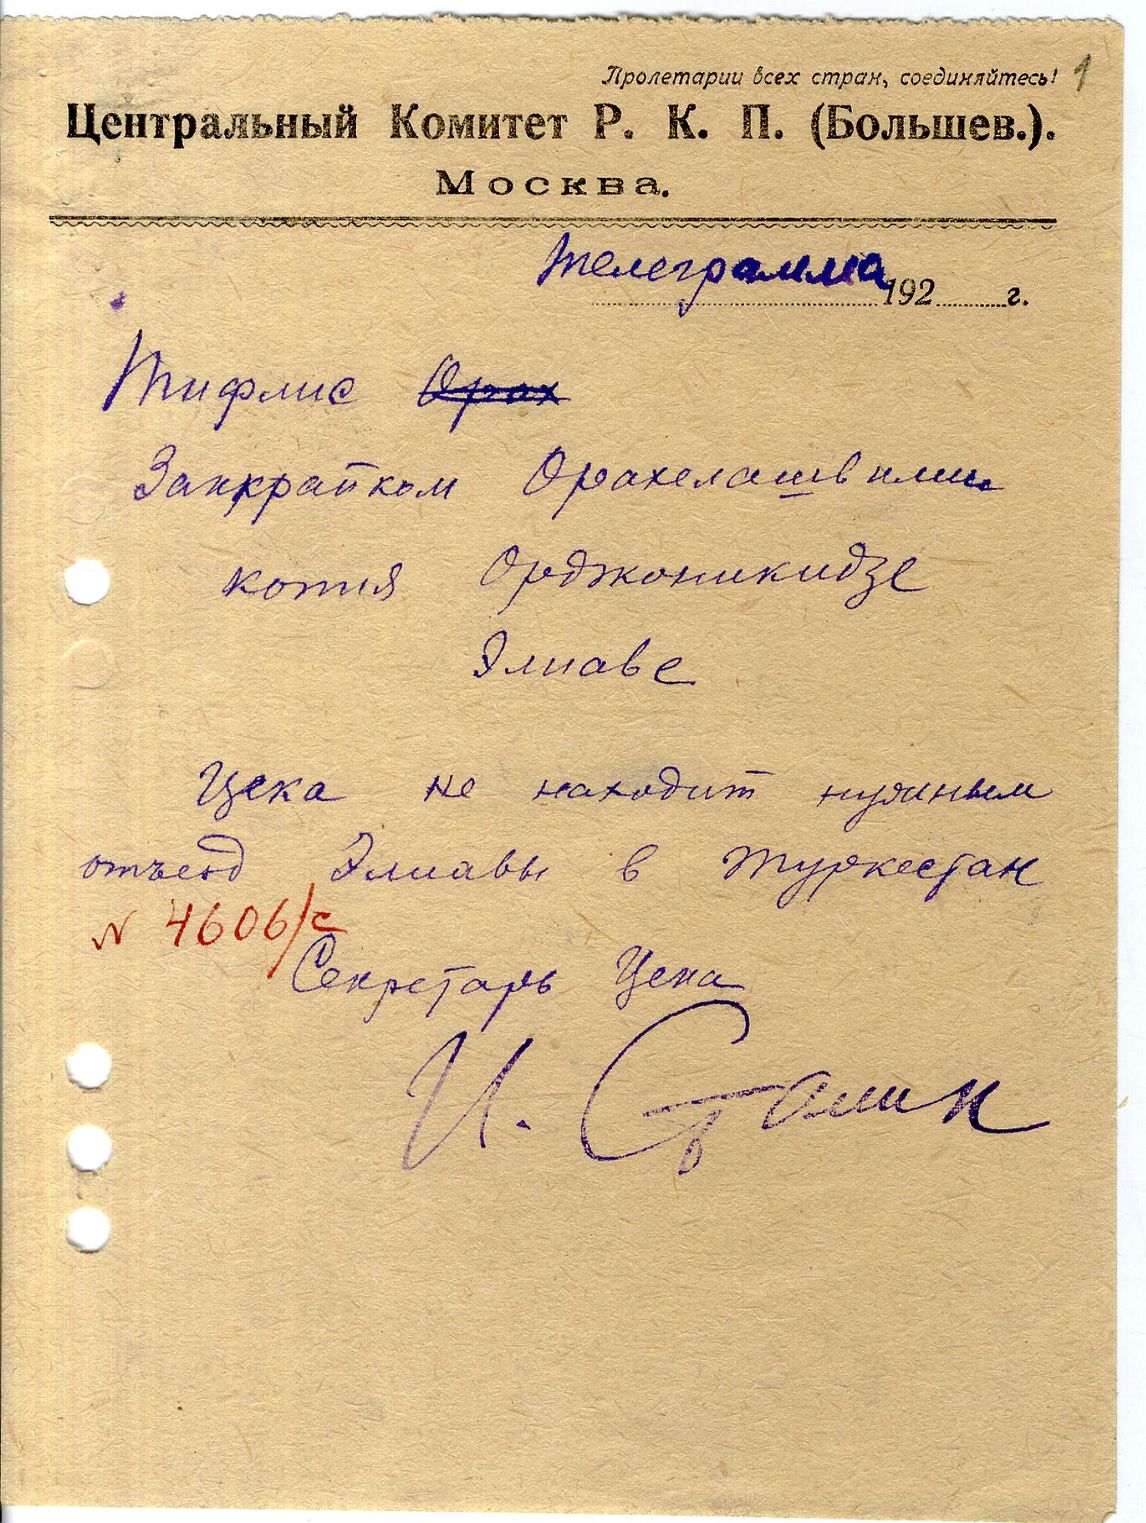 1
Пролетарии всех стран, соединяйтесь!
Центральный Комитет Р. К. П. (Большев.).
Москва.
телеграмма 192 г.
Тифлис Орах
Заккрайком Орахелашвили
копия Орджоникидзе
Элиаве
Цека не находит нужным
отъезд Элиавы в Туркестан
N 4606/с
Секретарь Цека
И. Сталин